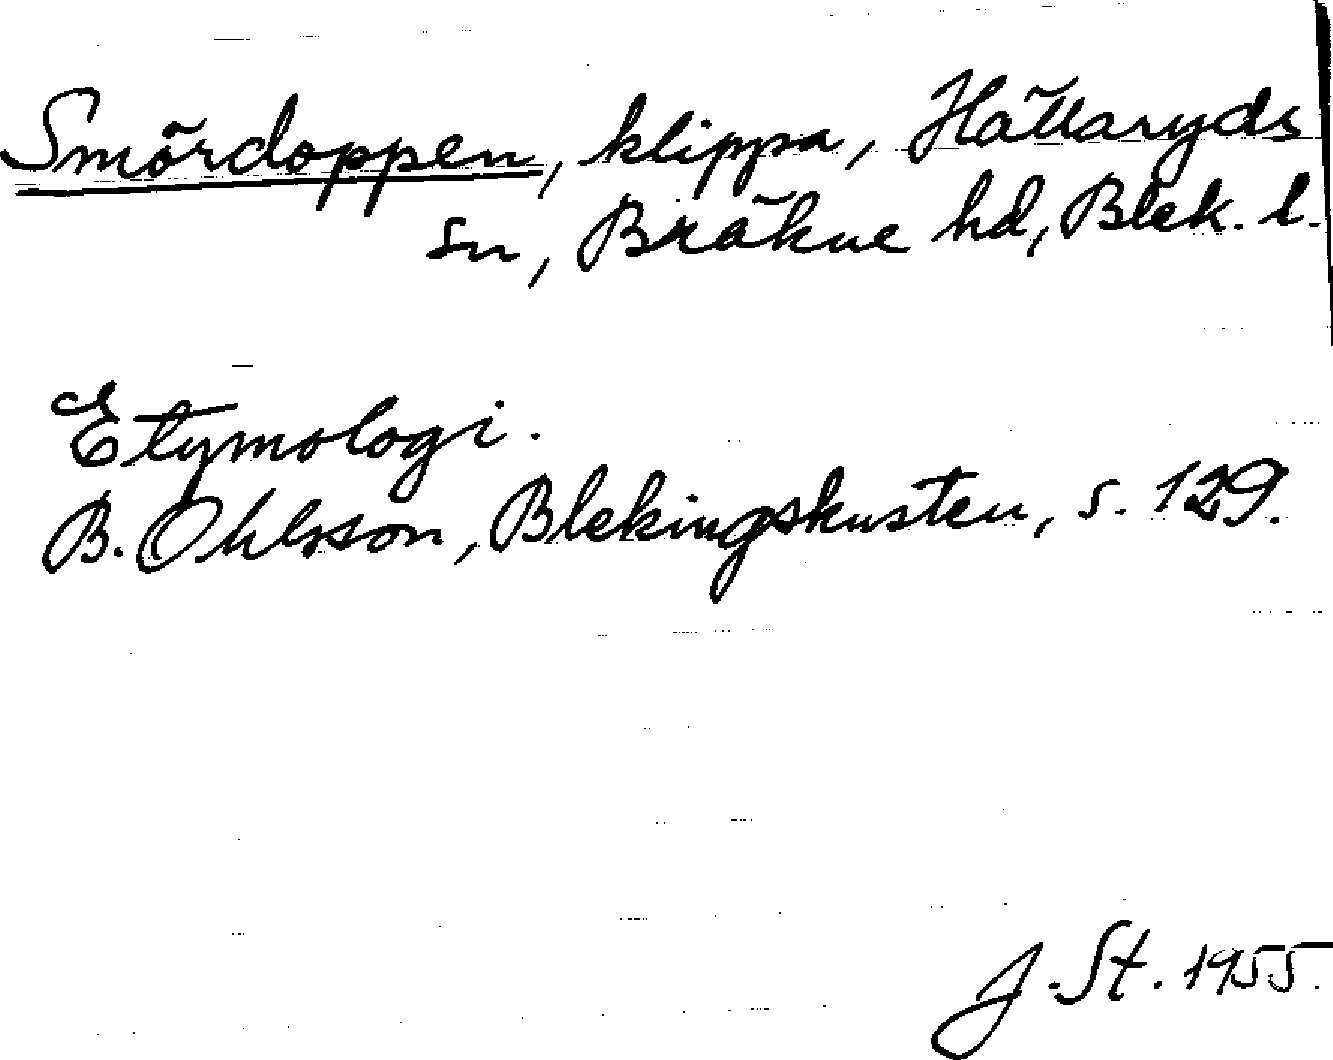 Smördoppen, klippa, Hällaryds
sn, Bräkne hd, Blek. l.
Etymologi.
B. Ohlsson, Blekingskusten, s. 129.
J. St. 1955